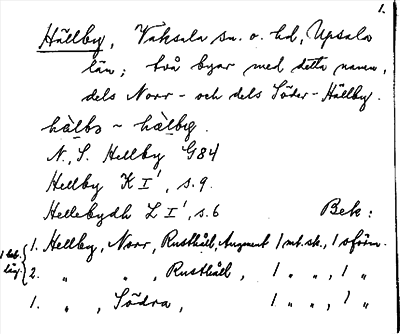 1.
Hällby, Vaksala sn. o. hd, Upsala
län; två byar med detta namn,
dels Norr- och dels Söder-Hällby.
hälbo ~ hælby.
N., S. Hellby G84
Hellby K I', s. 9.
Hellebydh L I', s. 6 Bek:
1. Hellby, Norr, Rusthåll, Augment 1 mt. sk., 1 oförm.
2. " " , Rusthåll, 1 " " , 1 "
1. " , Södra, 1 " " , 1 "